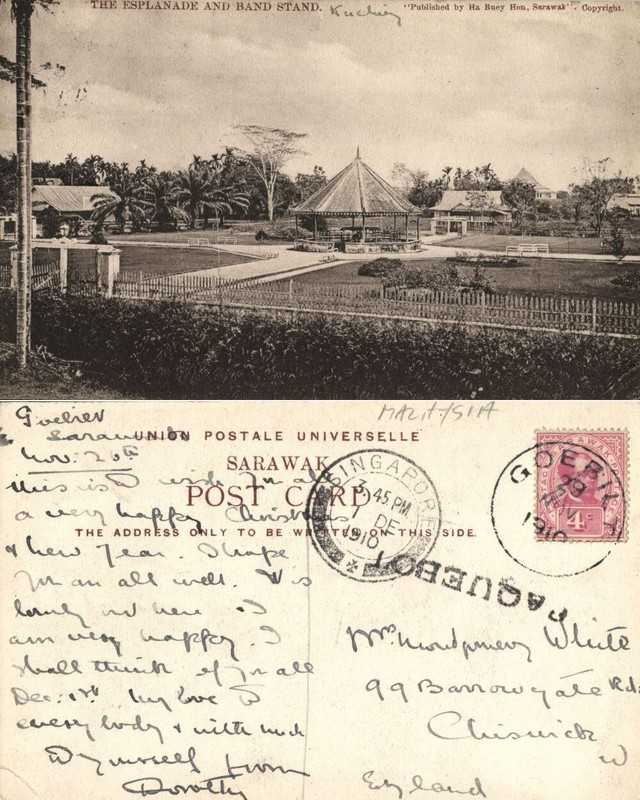 THE ESPLANADE AND BAND STAND. Kuching "Published by Ha Buey Hon, Sarawak". Copyright.
MALAYSIA
Goebilt
Sarawak
Nov: 20th
UNION POSTALE UNIVERSELLE
SARAWAK
POST CARD
THE ADDRESS ONLY TO BE WRITTEN ON THIS SIDE
SINGAPORE
3.45 PM
7 DE
1910
GOEBILT
29
NOV
1910
SARAWAK
4c
PAQUEBOT
this is to wish you all
a very happy Christmas
& New Year I hope
you are all well. It is
lovely out here & I
am very happy. I
shall think of you all
Dec: My love to
everybody & with much
to yourself from
Dorothy
Mrs Montgomery White
99 Barrowgate Rd:
Chiswick
W
England